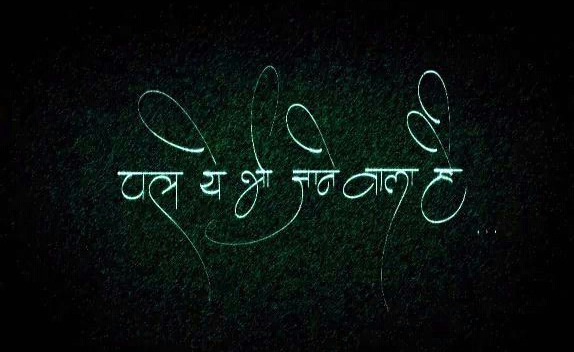 पल ये भी जाने वाला है ...